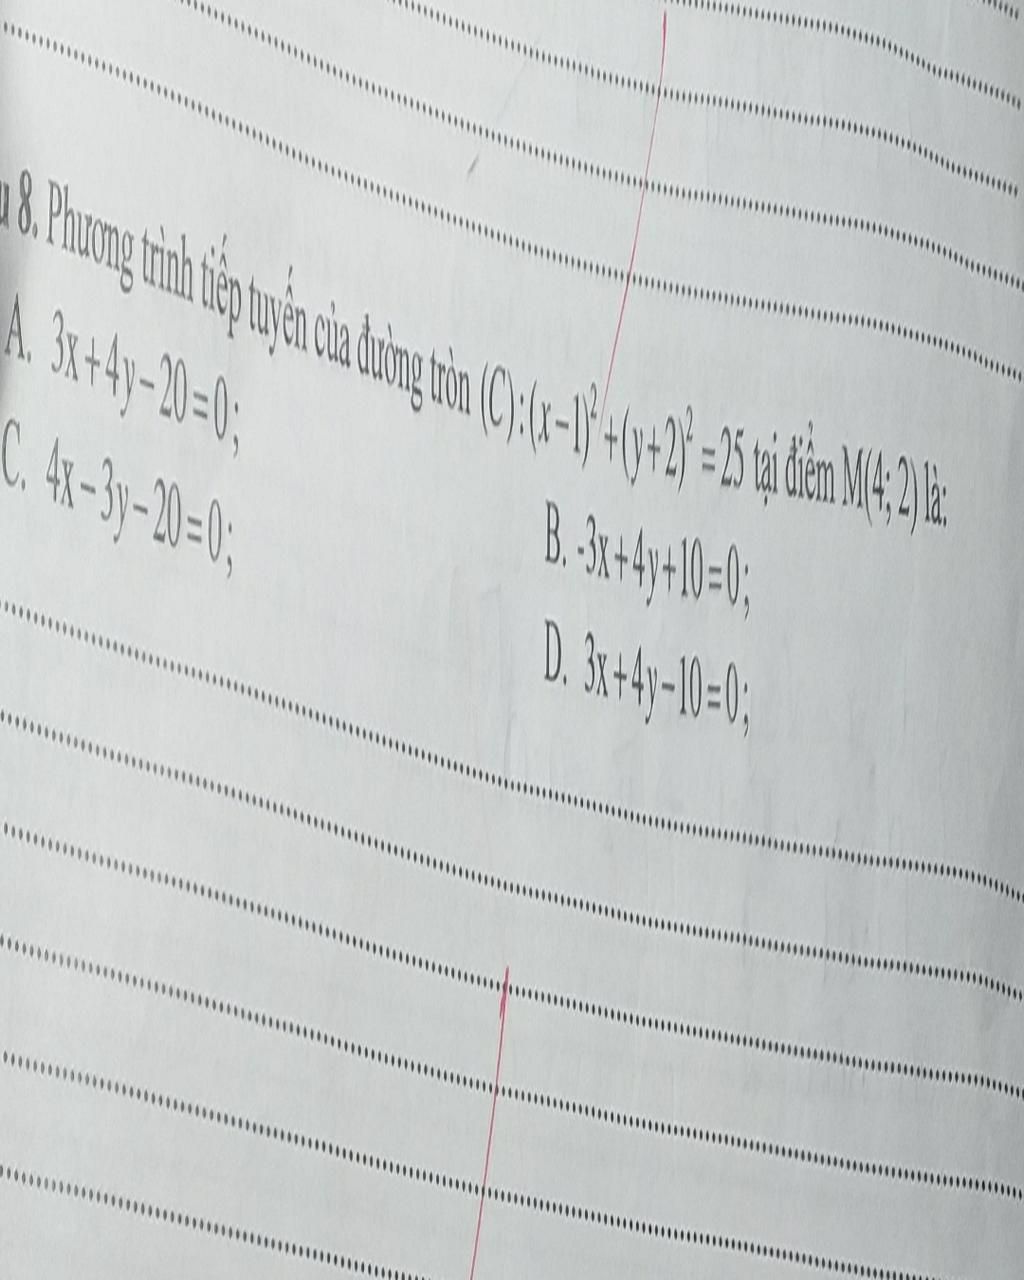 u 8. Phương trình tiếp tuyến của đường tròn (C):(x-1)²+(y+2)²=25 tại điểm M(4; 2) là:
A. 3x+4y-20=0;
B. -3x+4y+10=0;
C. 4x-3y-20=0;
D. 3x+4y-10=0;